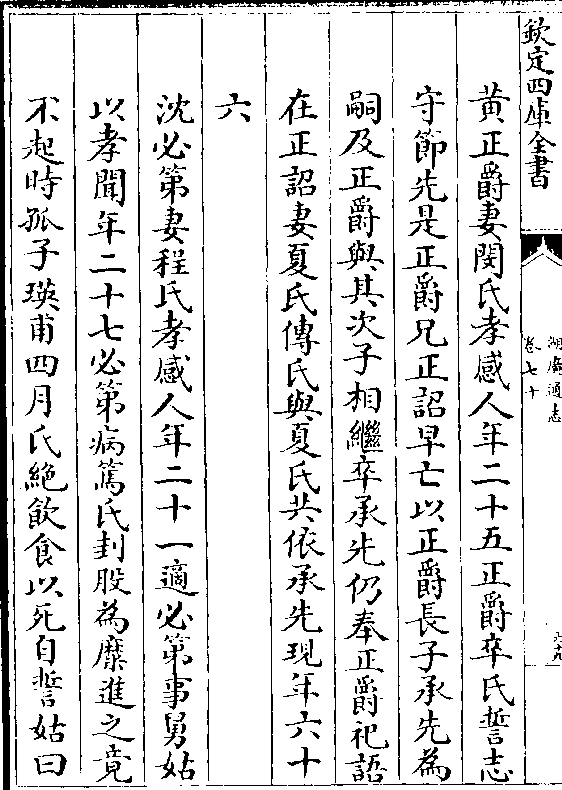 欽定四庫全書
湖廣通志
卷七十
黃正爵妻閔氏孝感人年二十五正爵卒氏誓志
守節先是正爵兄正詔早亡以正爵長子承先為
嗣及正爵與其次子相繼卒承先仍奉正爵祀語
在正詔妻夏氏傳氏與夏氏共依承先現年六十
六
沈必第妻程氏孝感人年二十一適必第事舅姑
以孝聞年二十七必第病篤氏刲股為糜進之竟
不起時孤子瑛甫四月氏絶飲食以死自誓姑曰